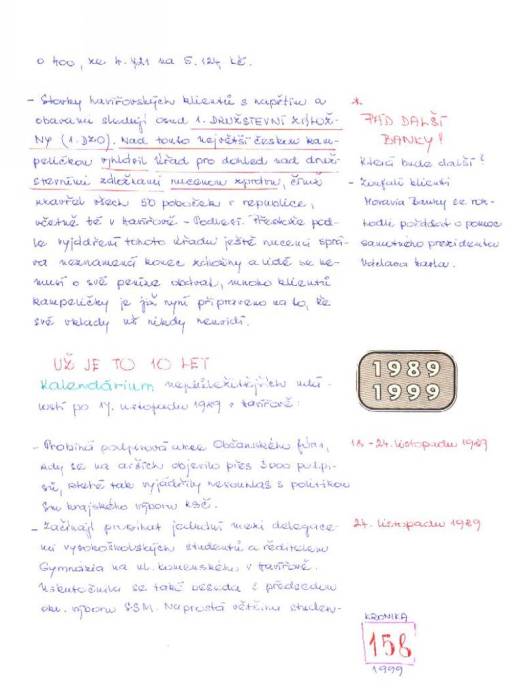 o 400, ze 4.721 na 5.124 Kč.
- Stovky havířovských klientů s napětím a
obavami sledují osud 1. DRUŽSTEVNÍ ZÁLOŽ-
NY (1. DZO). Nad touto největší českou kam-
peličkou vyhlásil Úřad pro dohled nad druž-
stevními záložnami nucenou správu, čímž
uzavřel všech 50 poboček v republice,
včetně té v Havířově - Podlesí. Přestože pod-
le vyjádření tohoto úřadu ještě nucená sprá-
va neznamená konec záložny a lidé se ne-
musí o své peníze obávat, mnoho klientů
kampeličky je již nyní připraveno na to, že
své vklady už nikdy neuvidí.
*
PÁD DALŠÍ
BANKY!
Která bude další?
- Zoufalí klienti
Moravia Banky se roz-
hodli požádat o pomoc
samotného prezidenta
Václava Havla.
UŽ JE TO 10 LET
Kalendárium nejdůležitějších udá-
lostí po 17. listopadu 1989 v Havířově:
1989
1999
- Probíhá podpisová akce Občanského fóra,
kdy se na arších objevilo přes 3000 podpi-
sů, které tak vyjádřily nesouhlas s politikou
krajského výboru KSČ.
18. - 24. listopadu 1989
- Začínají probíhat jednání mezi delegace-
mi vysokoškolských studentů a ředitelem
Gymnázia na ul. Komenského v Havířově.
Uskutečnila se také beseda s předsedou
okr. výboru SSM. Naprostá většina studen-
24. listopadu 1989
KRONIKA
158
1999